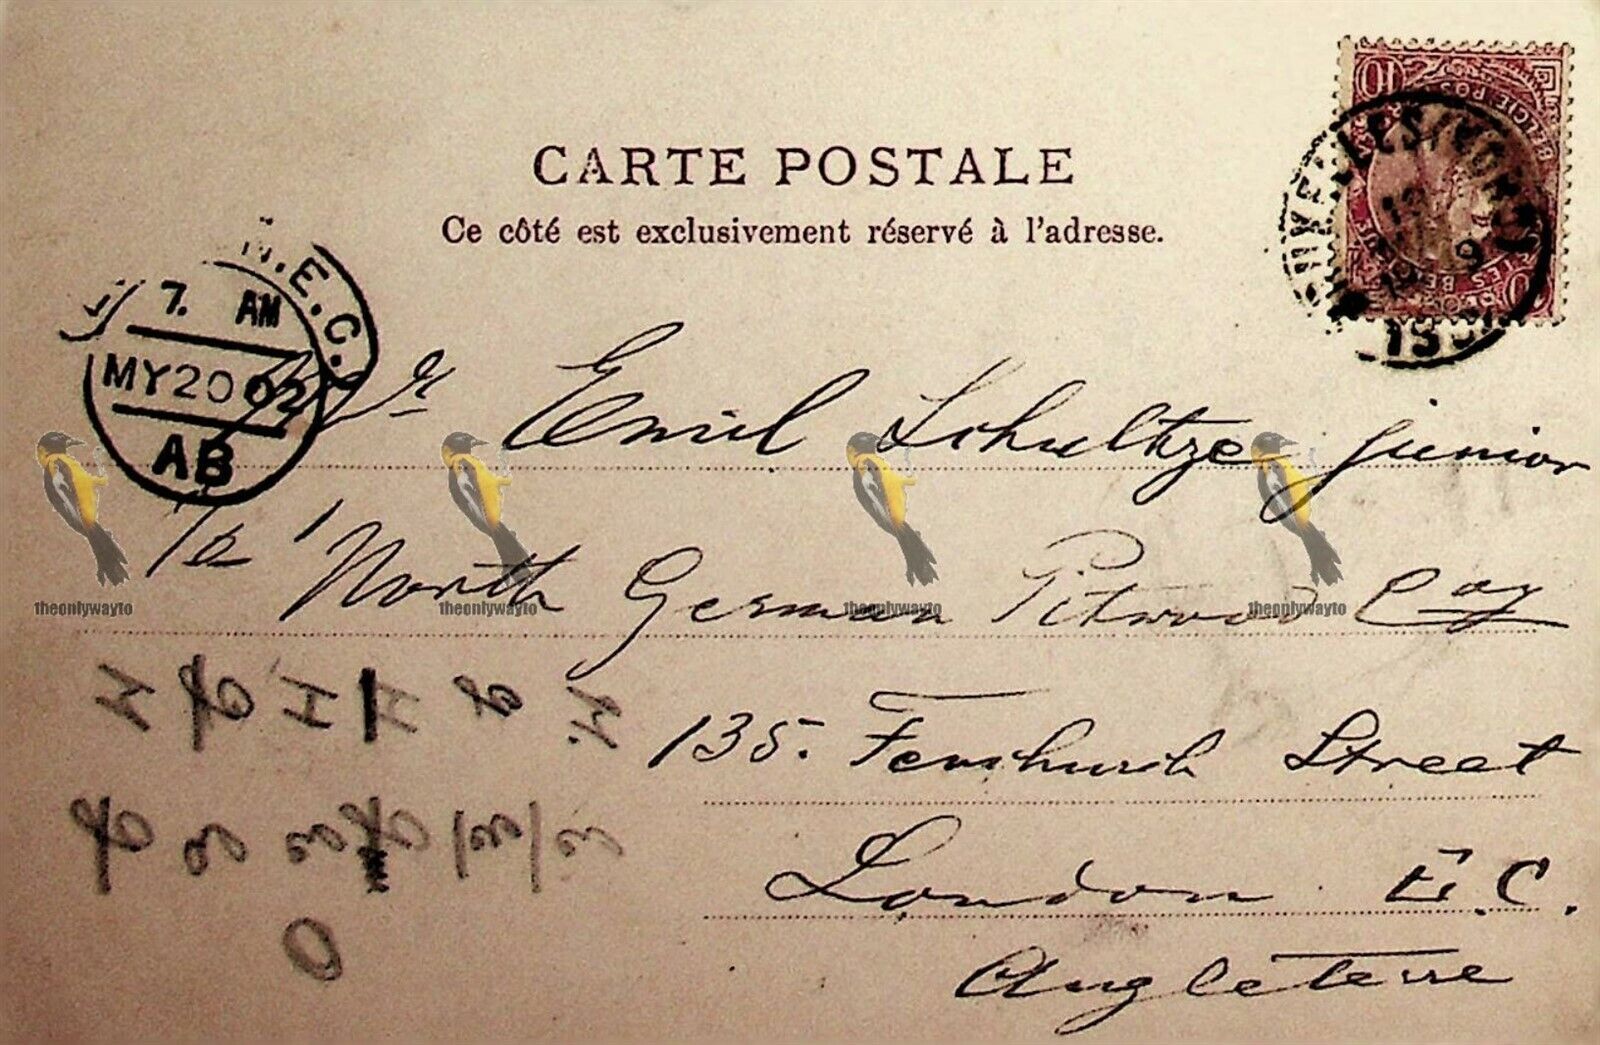 CARTE POSTALE
Ce côté est exclusivement réservé à l'adresse.
10
BELGIE POS
10
N.E.C.
7. AM
MY 20 02
AB
Mr Emil Schultze junior
North German Pitwood Coy
135. Fenchurch Street
London E.C.
Angleterre
theonlywayto theonlywayto theonlywayto theonlywayto